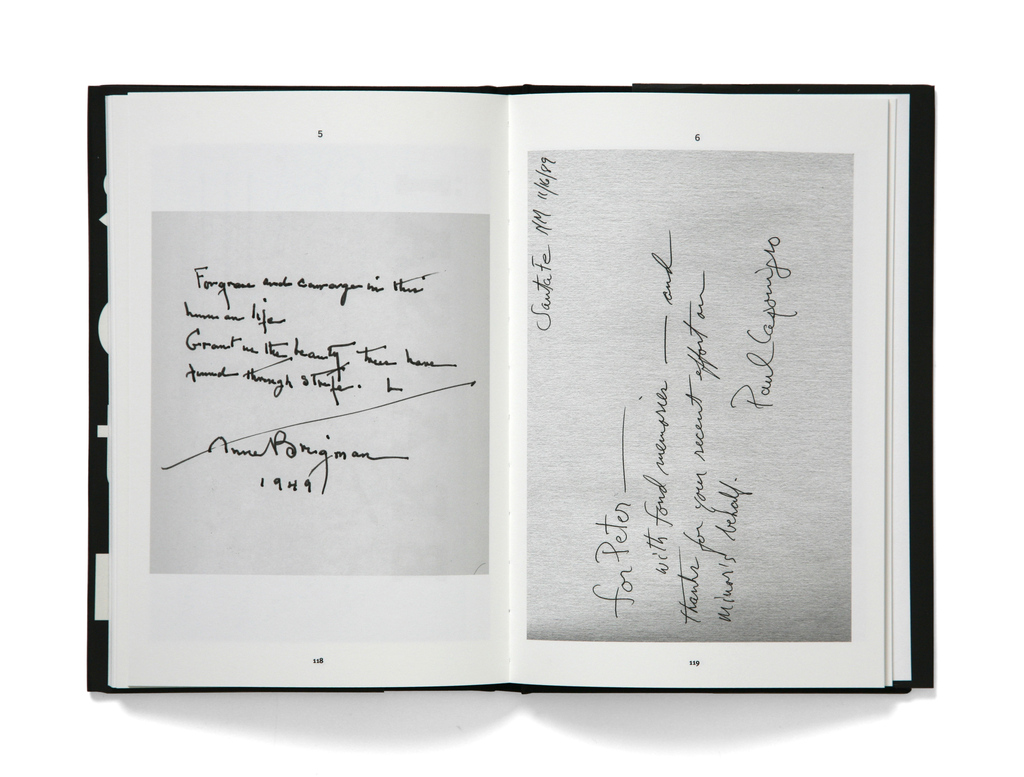 5
For grace and courage in this
human life
Grant us the beauty trees have
found through strife.
Anne Brigman
1949
118
6
Santa Fe NM 11/16/89
for Peter
with fond memories — and
thanks for your recent effort on
Minor's behalf.
Paul Caponigro
119